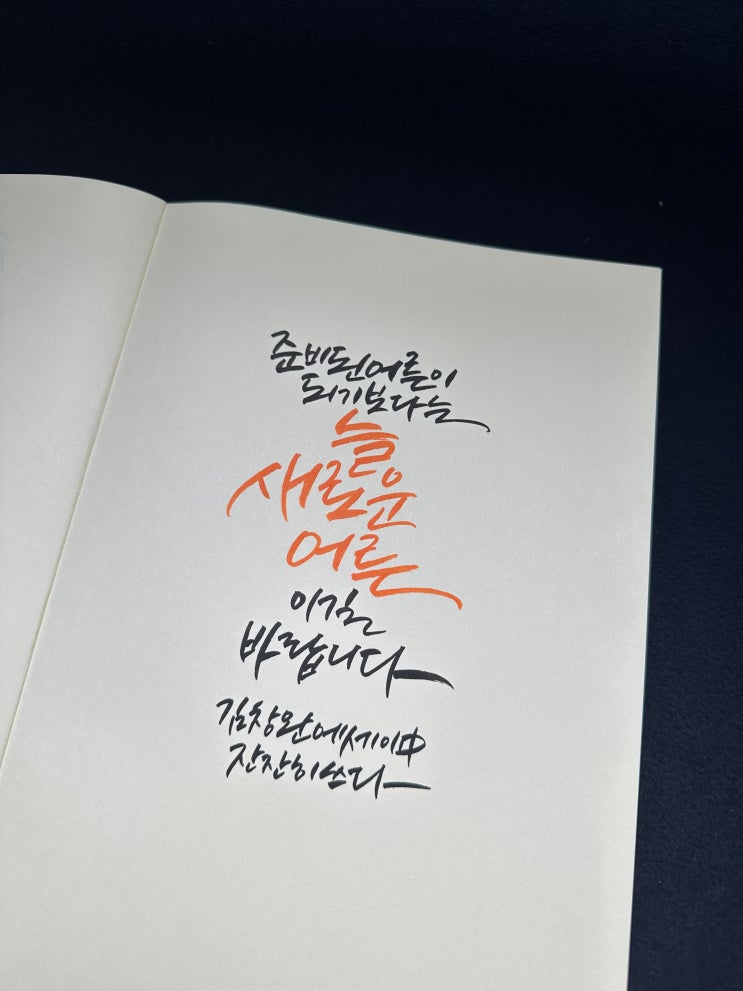 준비된 어른이
되기보다는
늘
새로운
어른
이길
바랍니다
김창완 에세이 中
잔잔히 쓰다